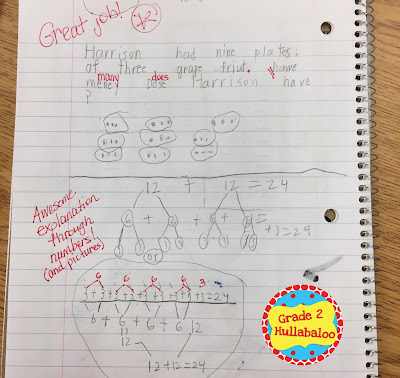 Great job!
Harrison had nine plates
of three grape friut. how
many does
meney dose Harrison have
?
12 + 12 = 24
6 + 6 + 6 + 6 =
3 3 3 3 3 3 3
+ 1 = 24
Awesome
explanation
through
numbers!
(and pictures)
6 6 6 6 3
3+3+3+3+3+3+3+3+1=24
6 + 6 + 6 + 6
12 12
12 + 12 = 24
Grade 2
Hullabaloo